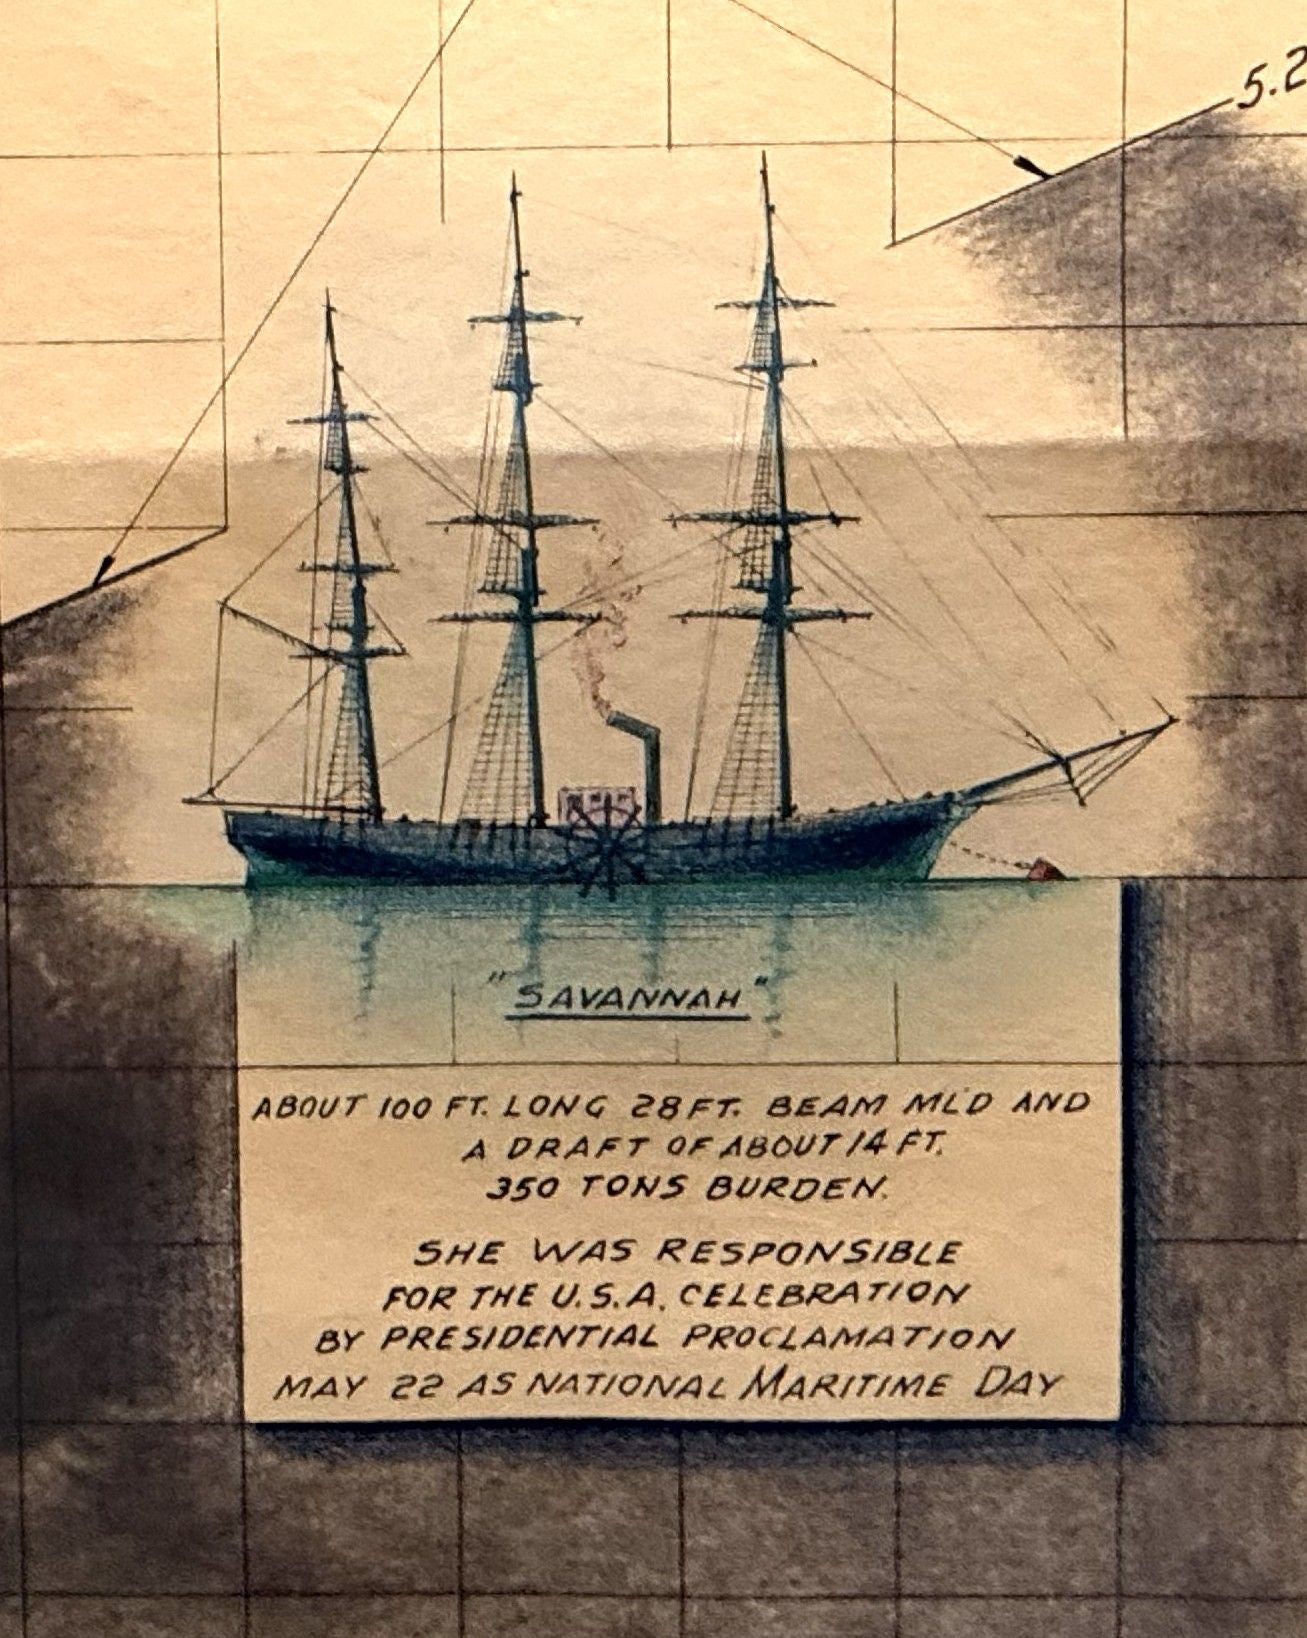 5.2
"SAVANNAH"
ABOUT 100 FT. LONG 28 FT. BEAM ML'D AND
A DRAFT OF ABOUT 14 FT.
350 TONS BURDEN.
SHE WAS RESPONSIBLE
FOR THE U.S.A. CELEBRATION
BY PRESIDENTIAL PROCLAMATION
MAY 22 AS NATIONAL MARITIME DAY